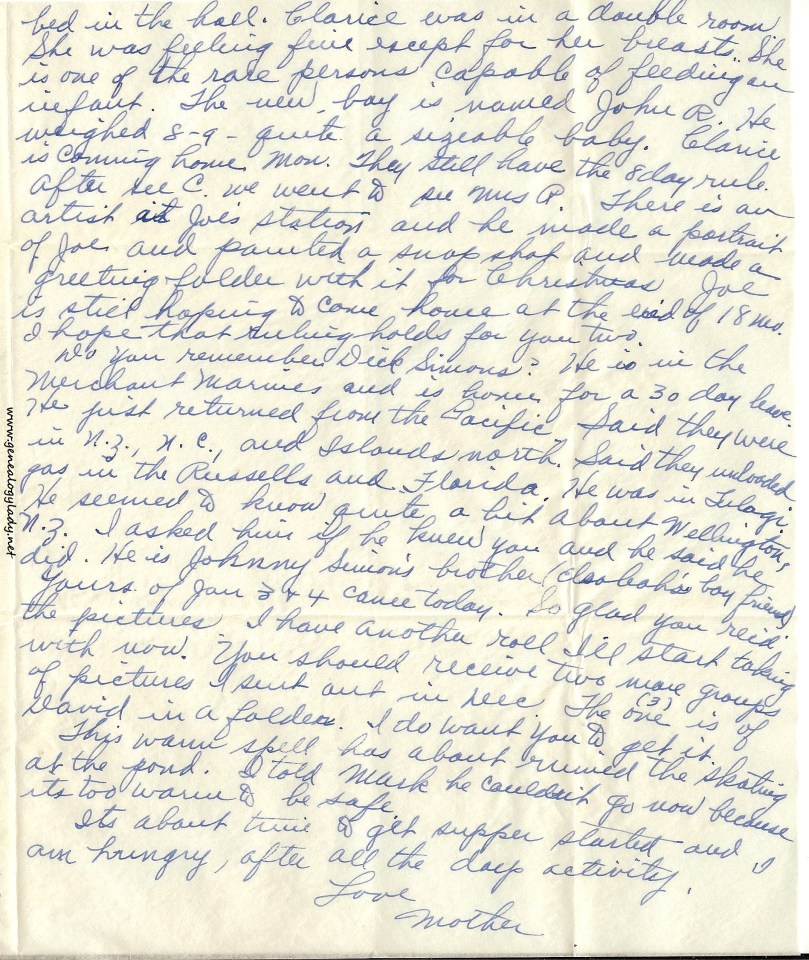 bed in the hall. Clarice was in a double room
She was feeling fine except for her breasts. She
is one of the rare persons capable of feeding an
infant. The new boy is named John R. He
weighed 8-9 - quite a sizeable baby. Clarice
is coming home Mon. They still have the 8 day rule.
After see C. we went to see Mrs P. There is an
artist at Joe's station and he made a portrait
of Joe and painted a snapshot and made a
greeting folder with it for Christmas Joe
is still hoping to come home at the end of 18 mo.
I hope that ruling holds for you two.
Do you remember Dick Simons? He is in the
Merchant Marines and is home for a 30 day leave.
He just returned from the Pacific Said they were
in N.Z., N.C., and Islands north. Said they unloaded
gas in the Russells and Florida. He was in Tulagi.
He seemed to know quite a bit about Wellington,
N.Z. I asked him if he knew you and he said he
did. He is Johnny Simon's brother (Isoleah's boy friend)
Yours of Jan 3 + 4 came today. So glad you rec'd
the pictures I have another roll I'll start taking
with now. You should receive two more groups
of pictures I sent out in Dec The one (3) is of
David in a folder. I do want you to get it.
This warm spell has about ruined the skating
at the pond. I told Mark he couldn't go now because
its too warm to be safe.
Its about time to get supper started and I
am hungry, after all the days activity.
Love
Mother
www.genealogylady.net